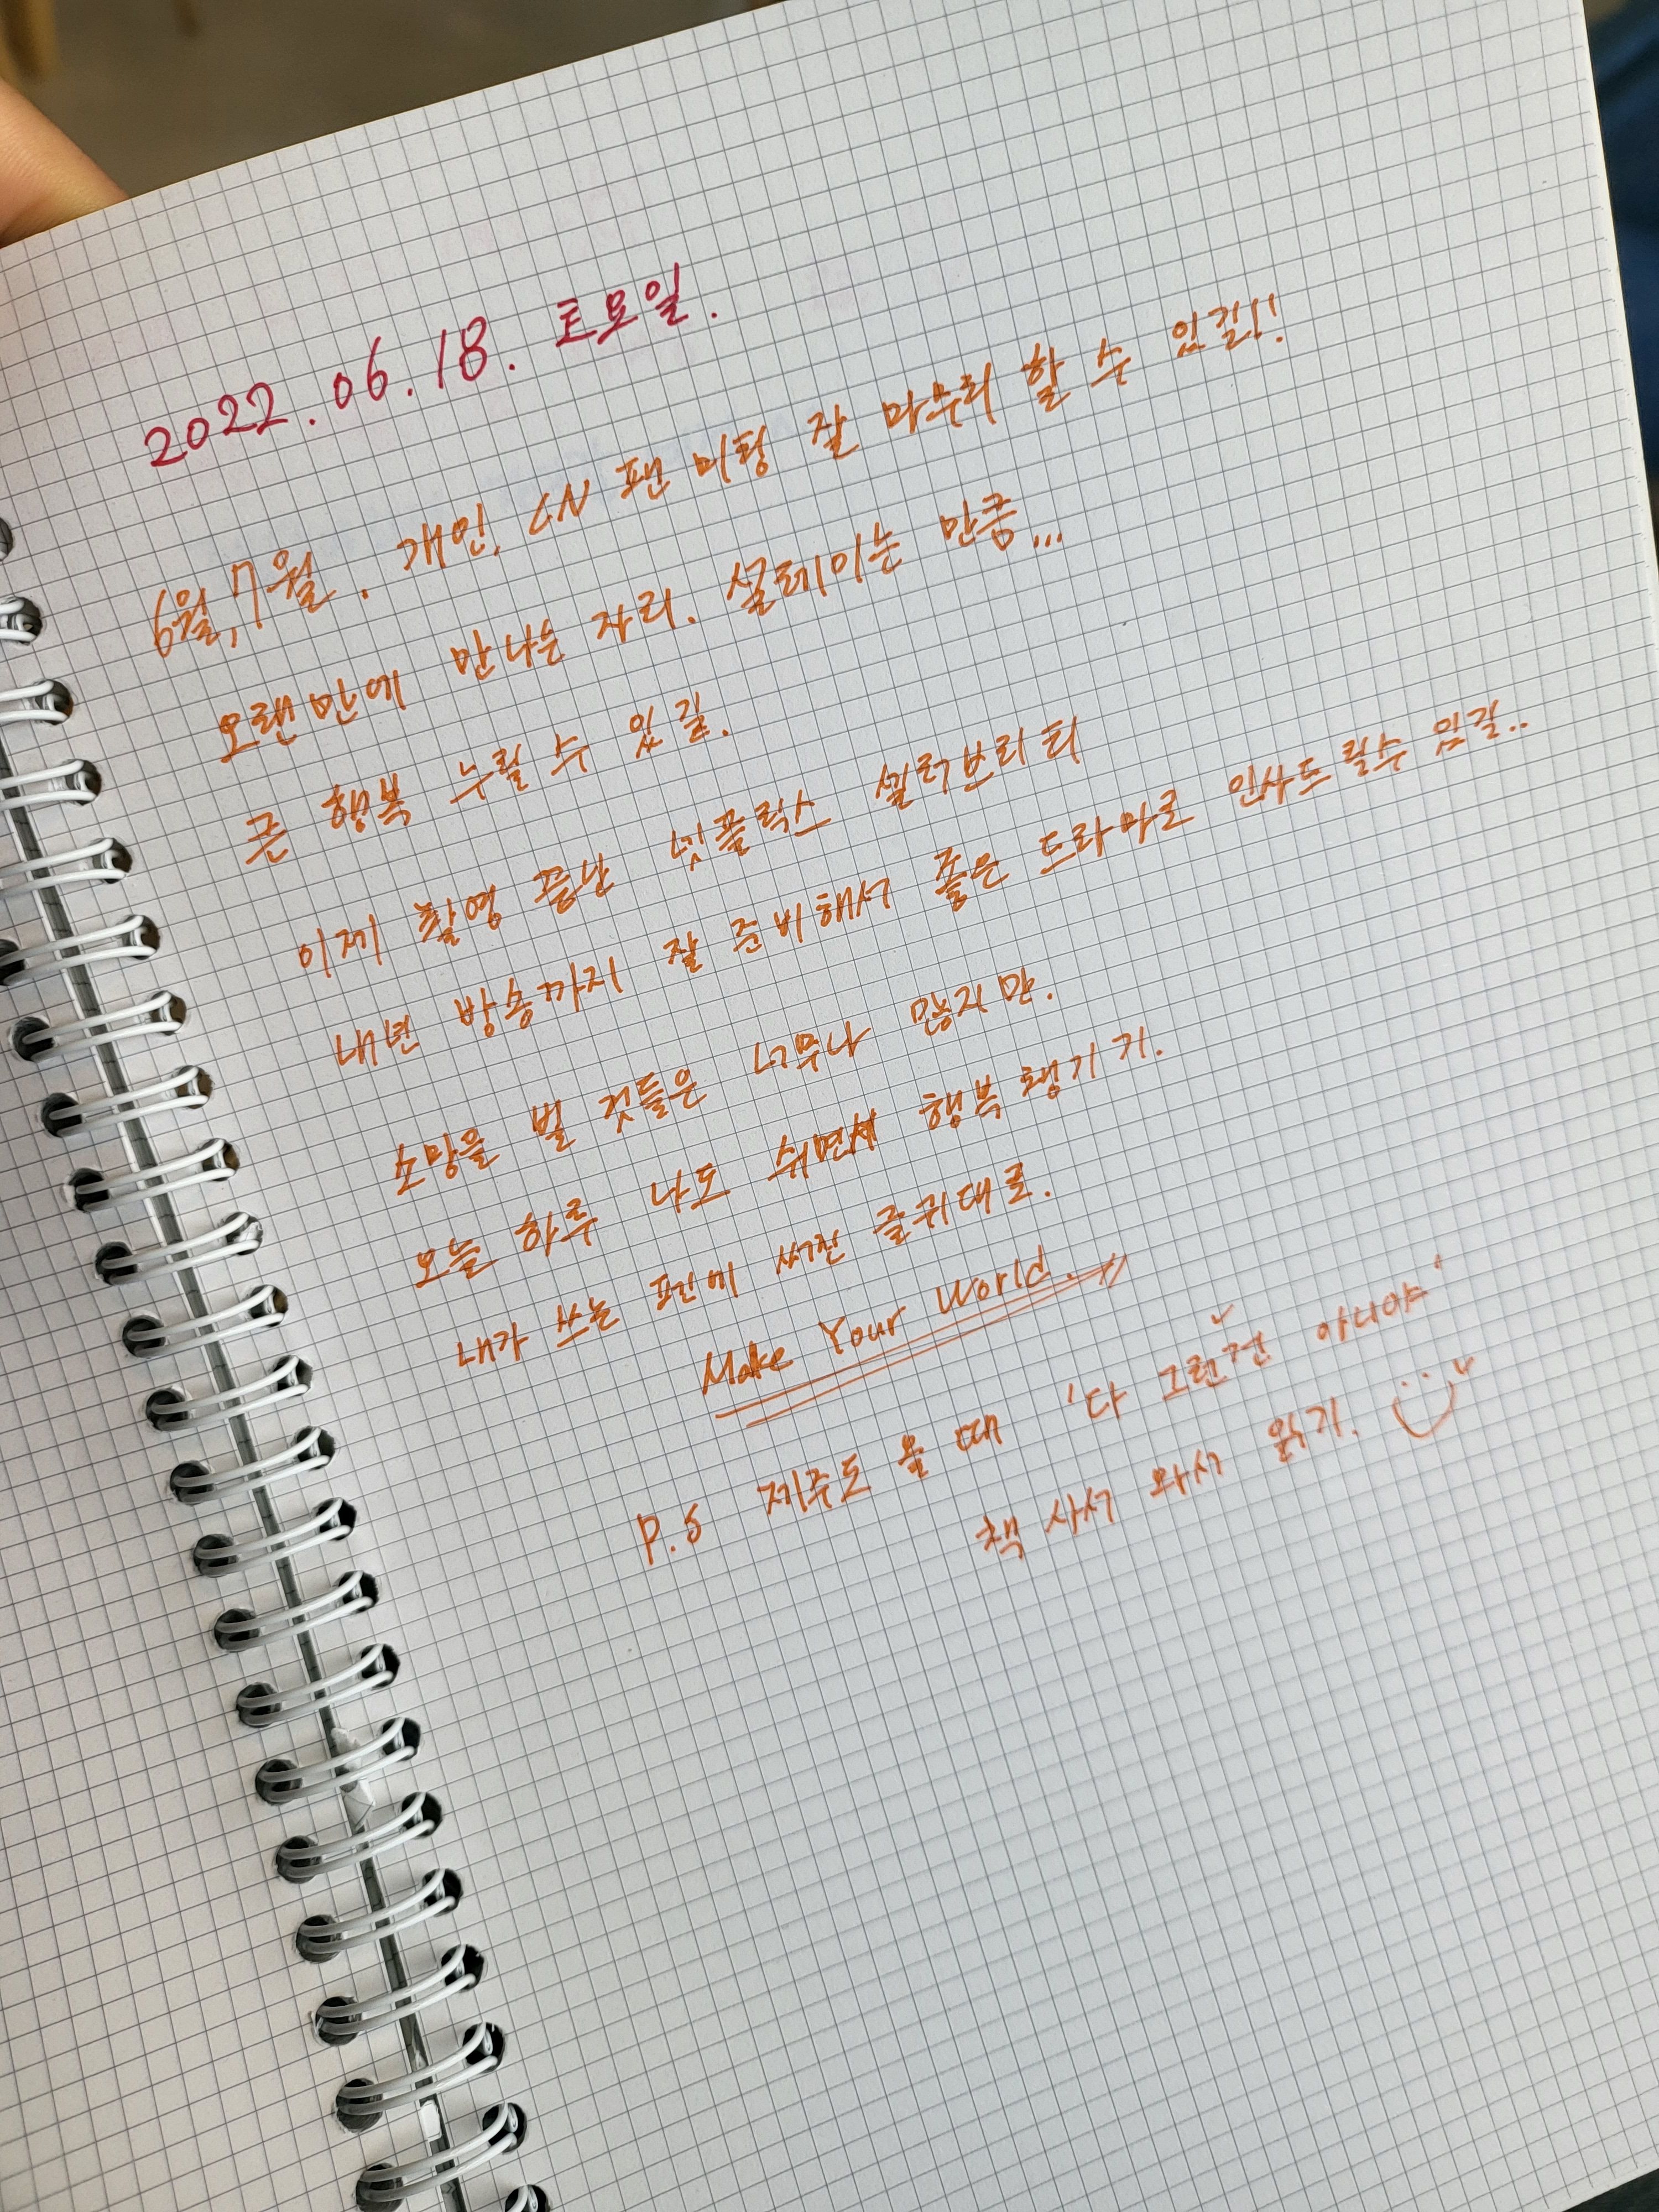 2022. 06. 18. 토요일.
6월, 7월. 개인, CN 팬미팅 잘 마무리 할 수 있길!!
오랜만에 만나는 자리. 설레이는 만큼...
큰 행복 누릴 수 있길.
이제 촬영 끝난 넷플릭스 셀럭브리티
내년 방송까지 잘 준비해서 좋은 드라마로 인사드릴수 있길..
소망을 빌 것들은 너무나 많지만.
오늘 하루 나도 쉬면서 행복 챙기기.
내가 쓰는 펜에 써진 글귀대로.
Make Your World.
P.S 제주도 올 때 '다 그런 건 아니야'
책 사서 와서 읽기.